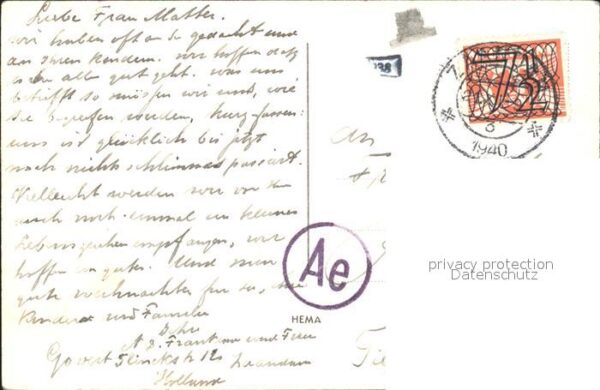 Liebe Frau Matter.
wir haben oft an Sie gedacht und
an Ihren Kindern. Wir hoffen dasz
es allen gut geht. Was uns
betrifft so müssen wir uns, wie
Sie begreifen werden, kurz fassen:
uns ist glücklich bis jetzt
noch nichts schlimmes passiert.
Vielleicht werden wir von Ihn
auch noch einmal ein kleines
Lebenszeichen empfangen, wir
hoffen ein gutes. Und nun
gute Weihnachten für Sie, die
Kinder und Familie
Ihre
und Frau
Govert Flinckstr 12 Zaandam
Holland
HEMA
Ae
138
An
7½
1940
privacy protection
Datenschutz